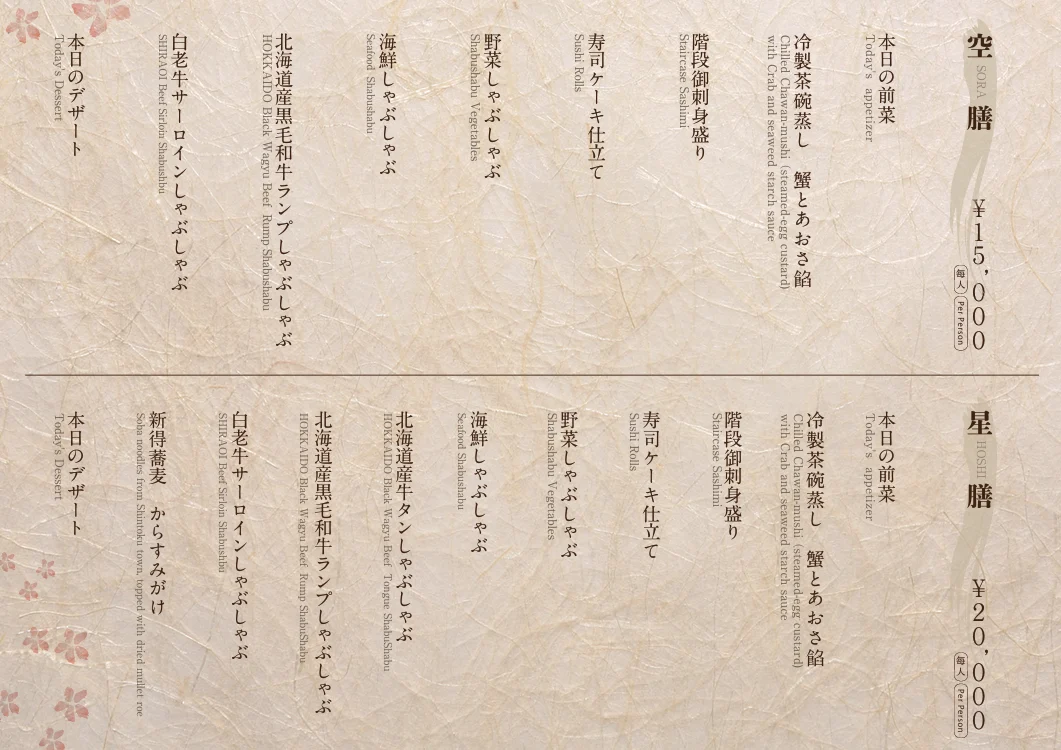 空 SORA 膳
¥15,000
每人 Per Person
本日の前菜
Today's appetizer
冷製茶碗蒸し 蟹とあおさ餡
Chilled Chawan-mushi (steamed-egg custard)
with Crab and seaweed starch sauce
階段御刺身盛り
Staircase Sashimi
寿司ケーキ仕立て
Sushi Rolls
野菜しゃぶしゃぶ
Shabushabu Vegetables
海鮮しゃぶしゃぶ
Seafood Shabushabu
北海道産黒毛和牛ランプしゃぶしゃぶ
HOKKAIDO Black Wagyu Beef Rump Shabushabu
白老牛サーロインしゃぶしゃぶ
SHIRAOI Beef Sirloin Shabushbu
本日のデザート
Today's Dessert
星 HOSHI 膳
¥20,000
每人 Per Person
本日の前菜
Today's appetizer
冷製茶碗蒸し 蟹とあおさ餡
Chilled Chawan-mushi (steamed-egg custard)
with Crab and seaweed starch sauce
階段御刺身盛り
Staircase Sashimi
寿司ケーキ仕立て
Sushi Rolls
野菜しゃぶしゃぶ
Shabushabu Vegetables
海鮮しゃぶしゃぶ
Seafood Shabushabu
北海道産牛タンしゃぶしゃぶ
HOKKAIDO Black Wagyu Beef Tongue ShabuShabu
北海道産黒毛和牛ランプしゃぶしゃぶ
HOKKAIDO Black Wagyu Beef Rump ShabuShabu
白老牛サーロインしゃぶしゃぶ
SHIRAOI Beef Sirloin Shabushbu
新得蕎麦 からすみがけ
Soba noodles from Shintoku town, topped with dried mullet roe
本日のデザート
Today's Dessert